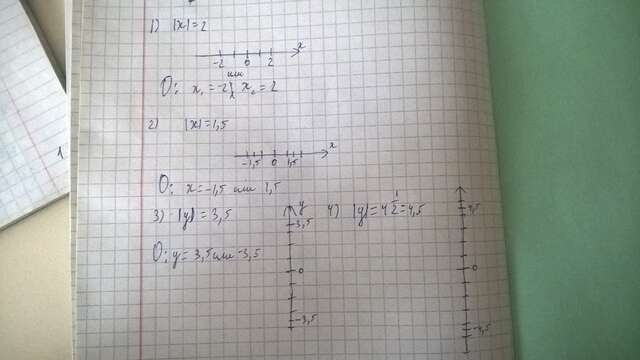 1) |x|=2
x
-2 0 2
или
О: x₁ = -2; x₂ = 2
2) |x|=1,5
x
-1,5 0 1,5
О: x=-1,5 или 1,5
3) |y| = 3,5
y
3,5
0
-3,5
О: y = 3,5 или -3,5
4) |y|=4 1/2=4,5
4,5
0
-4,5
1